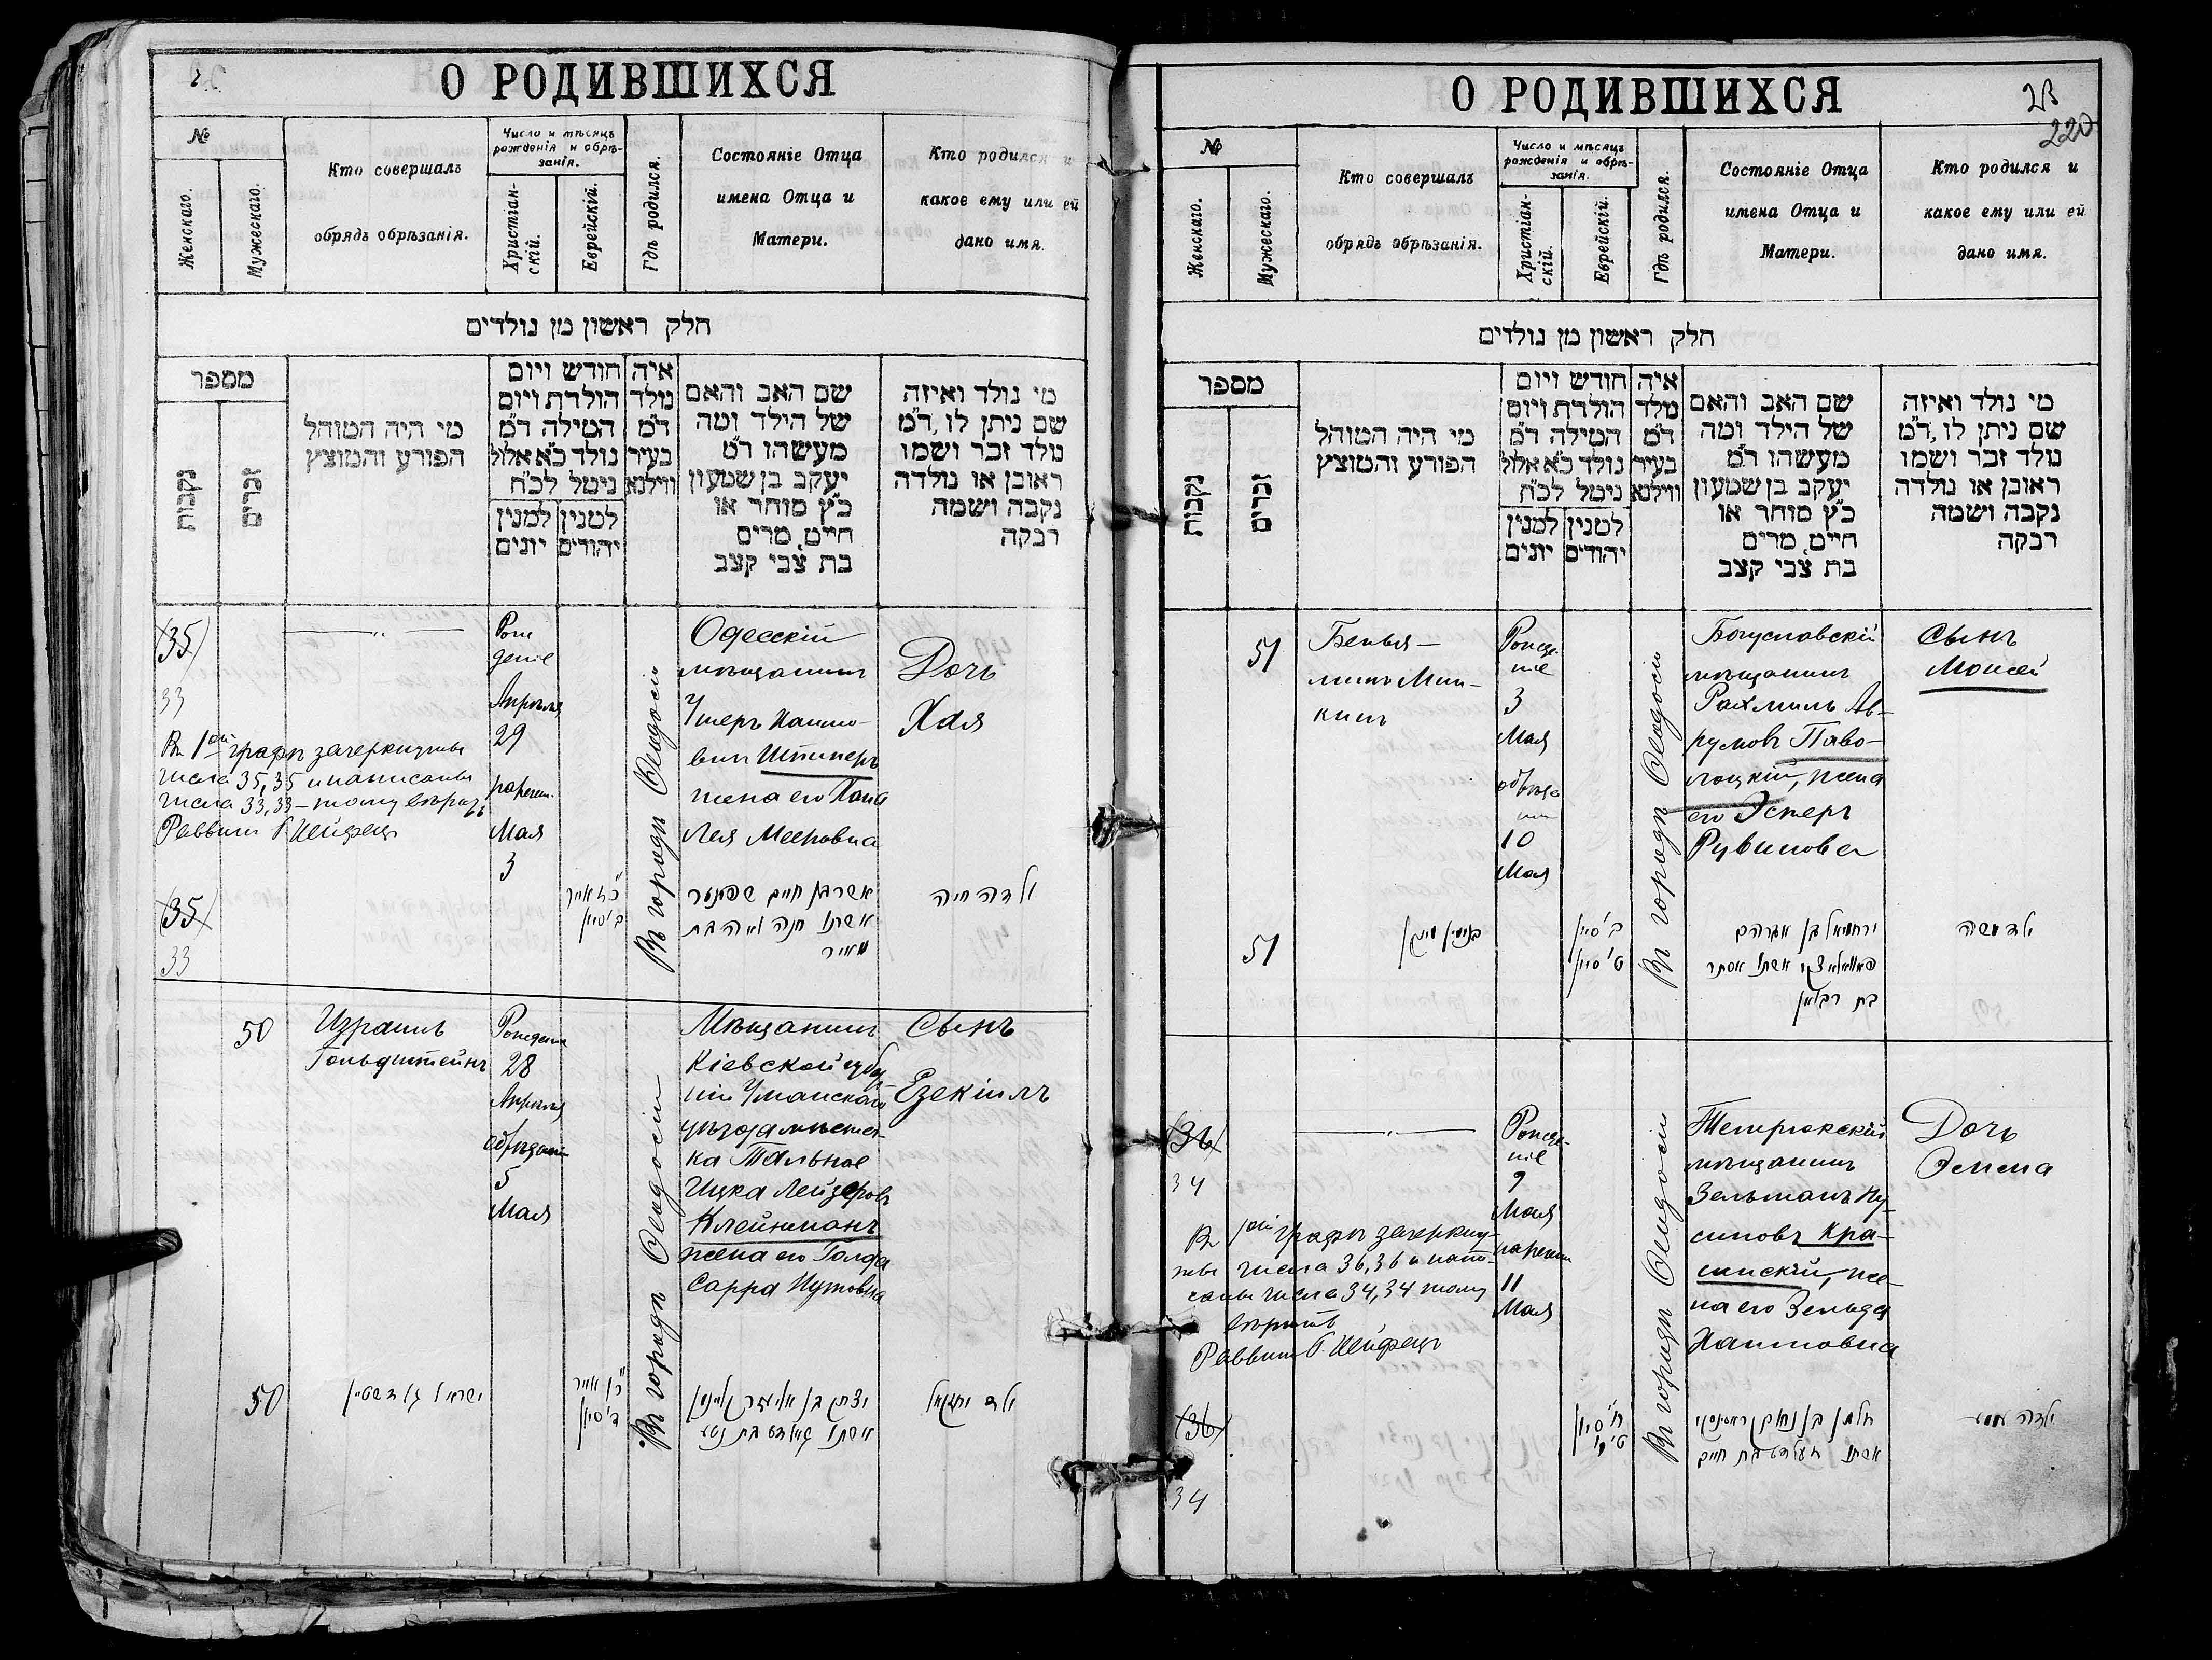 О РОДИВШИХСЯ
№
Женскаго.
Мужескаго.
Кто совершалъ
обрядъ обрѣзанія.
Число и мѣсяцъ
рожденія и обрѣ-
занія.
Христіан-
скій.
Еврейскій.
Гдѣ родился.
Состояніе Отца
имена Отца и
Матери.
Кто родился и
какое ему или ей
дано имя.
חלק ראשון מן נולדים
מספר
נקבות
זכרים
מי היה המוהל
הפורע והמוצץ
חודש ויום
הולדת ויום
המילה ד"מ
נולד כ"א אלול
ניטל לכ"ח
למנין יונים
למנין יהודים
איה
נולד
ד"מ
בעיר
ווילנא
שם האב והאם
של הילד ומה
מעשהו ד"מ
יעקב בן שמעון
כ"ץ סוחר או
חייט, מרים
בת צבי קצב
מי נולד ואיזה
שם ניתן לו, ד"מ
נולד זכר ושמו
ראובן או נולדה
נקבה ושמה
רבקה
35
33
Въ 1ой графѣ зачеркнуты
числа 35, 35 и написаны
числа 33, 33 – тому вѣрить
Раввинъ
35
33
Рож
деніе
Апрѣля
29
нареч.
Мая
3
Въ городѣ Ѳеодосіи
Одесскій
мѣщанинъ
Хаимо-
вичъ
жена его Хана
Лея Мееровна
אשר בן חיים
אשתו חנה לאה בת
מאיר
Дочь
Хая
ילדה חיה
50
Израиль
Гольдштейнъ
Рожденіе
28
Апрѣля
обрѣзаніе
5
Мая
Въ городѣ Ѳеодосіи
Мѣщанинъ
Кіевской губер-
ніи Уманскаго
уѣзда мѣстеч-
ка Тальное
Ицка Лейзеровъ
Клейнманъ
жена его Голда
Сарра Нутовна
Сынъ
Езекіиль
50
ישראל גולדשטיין
יצחק בן אליעזר קליינמן
אשתו גאלדע בת נטע
ילד יחזקאל
О РОДИВШИХСЯ
23
220
№
Женскаго.
Мужескаго.
Кто совершалъ
обрядъ обрѣзанія.
Число и мѣсяцъ
рожденія и обрѣ-
занія.
Христіан-
скій.
Еврейскій.
Гдѣ родился.
Состояніе Отца
имена Отца и
Матери.
Кто родился и
какое ему или ей
дано имя.
חלק ראשון מן נולדים
מספר
נקבות
זכרים
מי היה המוהל
הפורע והמוצץ
חודש ויום
הולדת ויום
המילה ד"מ
נולד כ"א אלול
ניטל לכ"ח
למנין יונים
למנין יהודים
איה
נולד
ד"מ
בעיר
ווילנא
שם האב והאם
של הילד ומה
מעשהו ד"מ
יעקב בן שמעון
כ"ץ סוחר או
חייט, מרים
בת צבי קצב
מי נולד ואיזה
שם ניתן לו, ד"מ
נולד זכר ושמו
ראובן או נולדה
נקבה ושמה
רבקה
51
Бенья-
минъ Мин-
кинъ
Рожде-
ніе
3
Мая
обрѣза
ніе
10
Мая
Въ городѣ Ѳеодосіи
Богуславскій
мѣщанинъ
Рахмиль Ав-
румовъ Паво-
лоцкій, жена
его Эстеръ
Рувинова
Сынъ
Моисей
51
בנימין מינקין
ב' סיון
ט' סיון
ירחמיאל בן אברהם
אשתו אסתר
בת ראובן
ילד משה
36
34
Въ 1ой графѣ зачеркну-
ты числа 36, 36 и напи-
саны числа 34, 34 тому
вѣрить
Раввинъ
36
34
Рожде-
ніе
9
Мая
нареченіе
11
Мая
Въ городѣ Ѳеодосіи
Темрюкскій
мѣщанинъ
Зельманъ Ну-
симовъ Кра-
жена его Зельда
Хаимовна
Дочь
ח' סיון
זלמן בן
אשתו זעלדע בת חיים
ילדה